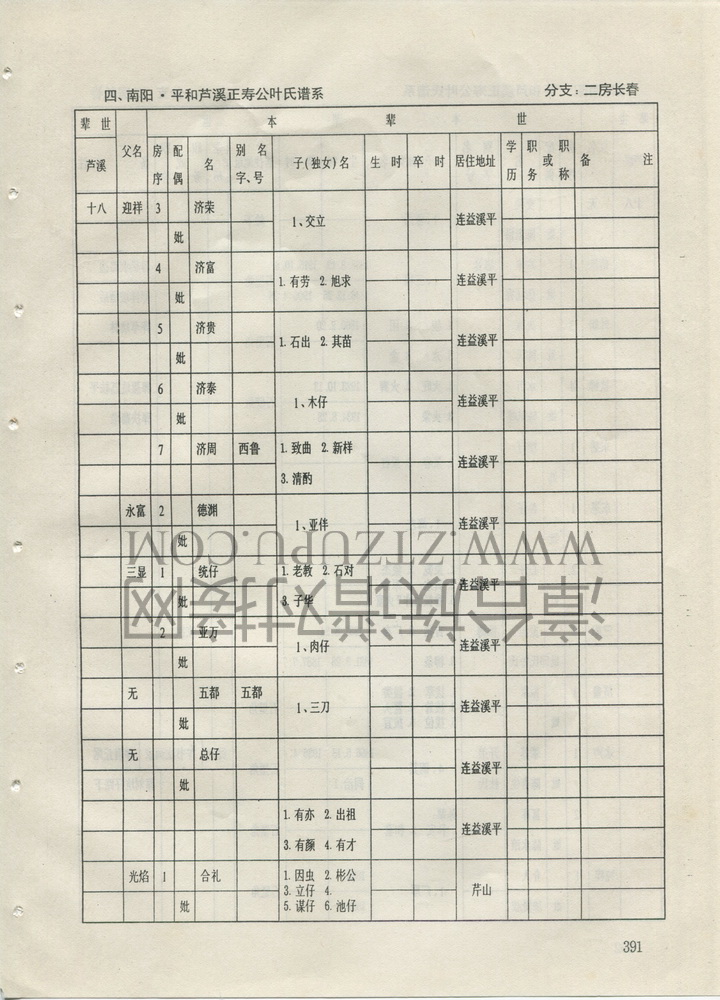 四、南阳·平和芦溪正寿公叶氏谱系 分支：二房长春
辈世 本 辈 世
芦溪 父名 房序 配偶 名 别名字、号 子(独女)名 生时 卒时 居住地址 学历 职务或职称 备注
十八 迎祥 3 济荣 1、交立 连益溪平
妣
4 济富 1.有劳 2.旭求 连益溪平
妣
5 济贵 1.石出 2.其苗 连益溪平
妣
6 济泰 1、木仔 连益溪平
妣
7 济周 西鲁 1.致曲 2.新样 连益溪平
3.清酌
永富 2 德渊 1、亚伴 连益溪平
妣
三显 1 统仔 1.老教 2.石对 连益溪平
妣 3.子华
2 亚万 1、肉仔 连益溪平
妣
无 五都 五都 1、三刀 连益溪平
妣
无 总仔 连益溪平
妣
1.有亦 2.出祖 连益溪平
3.有颜 4.有才
光焰 1 合礼 1.因虫 2.彬公 芹山
3.立仔 4.
妣 5.谋仔 6.池仔
391
WWW.ZTZUPU.COM
漳台族谱对接网